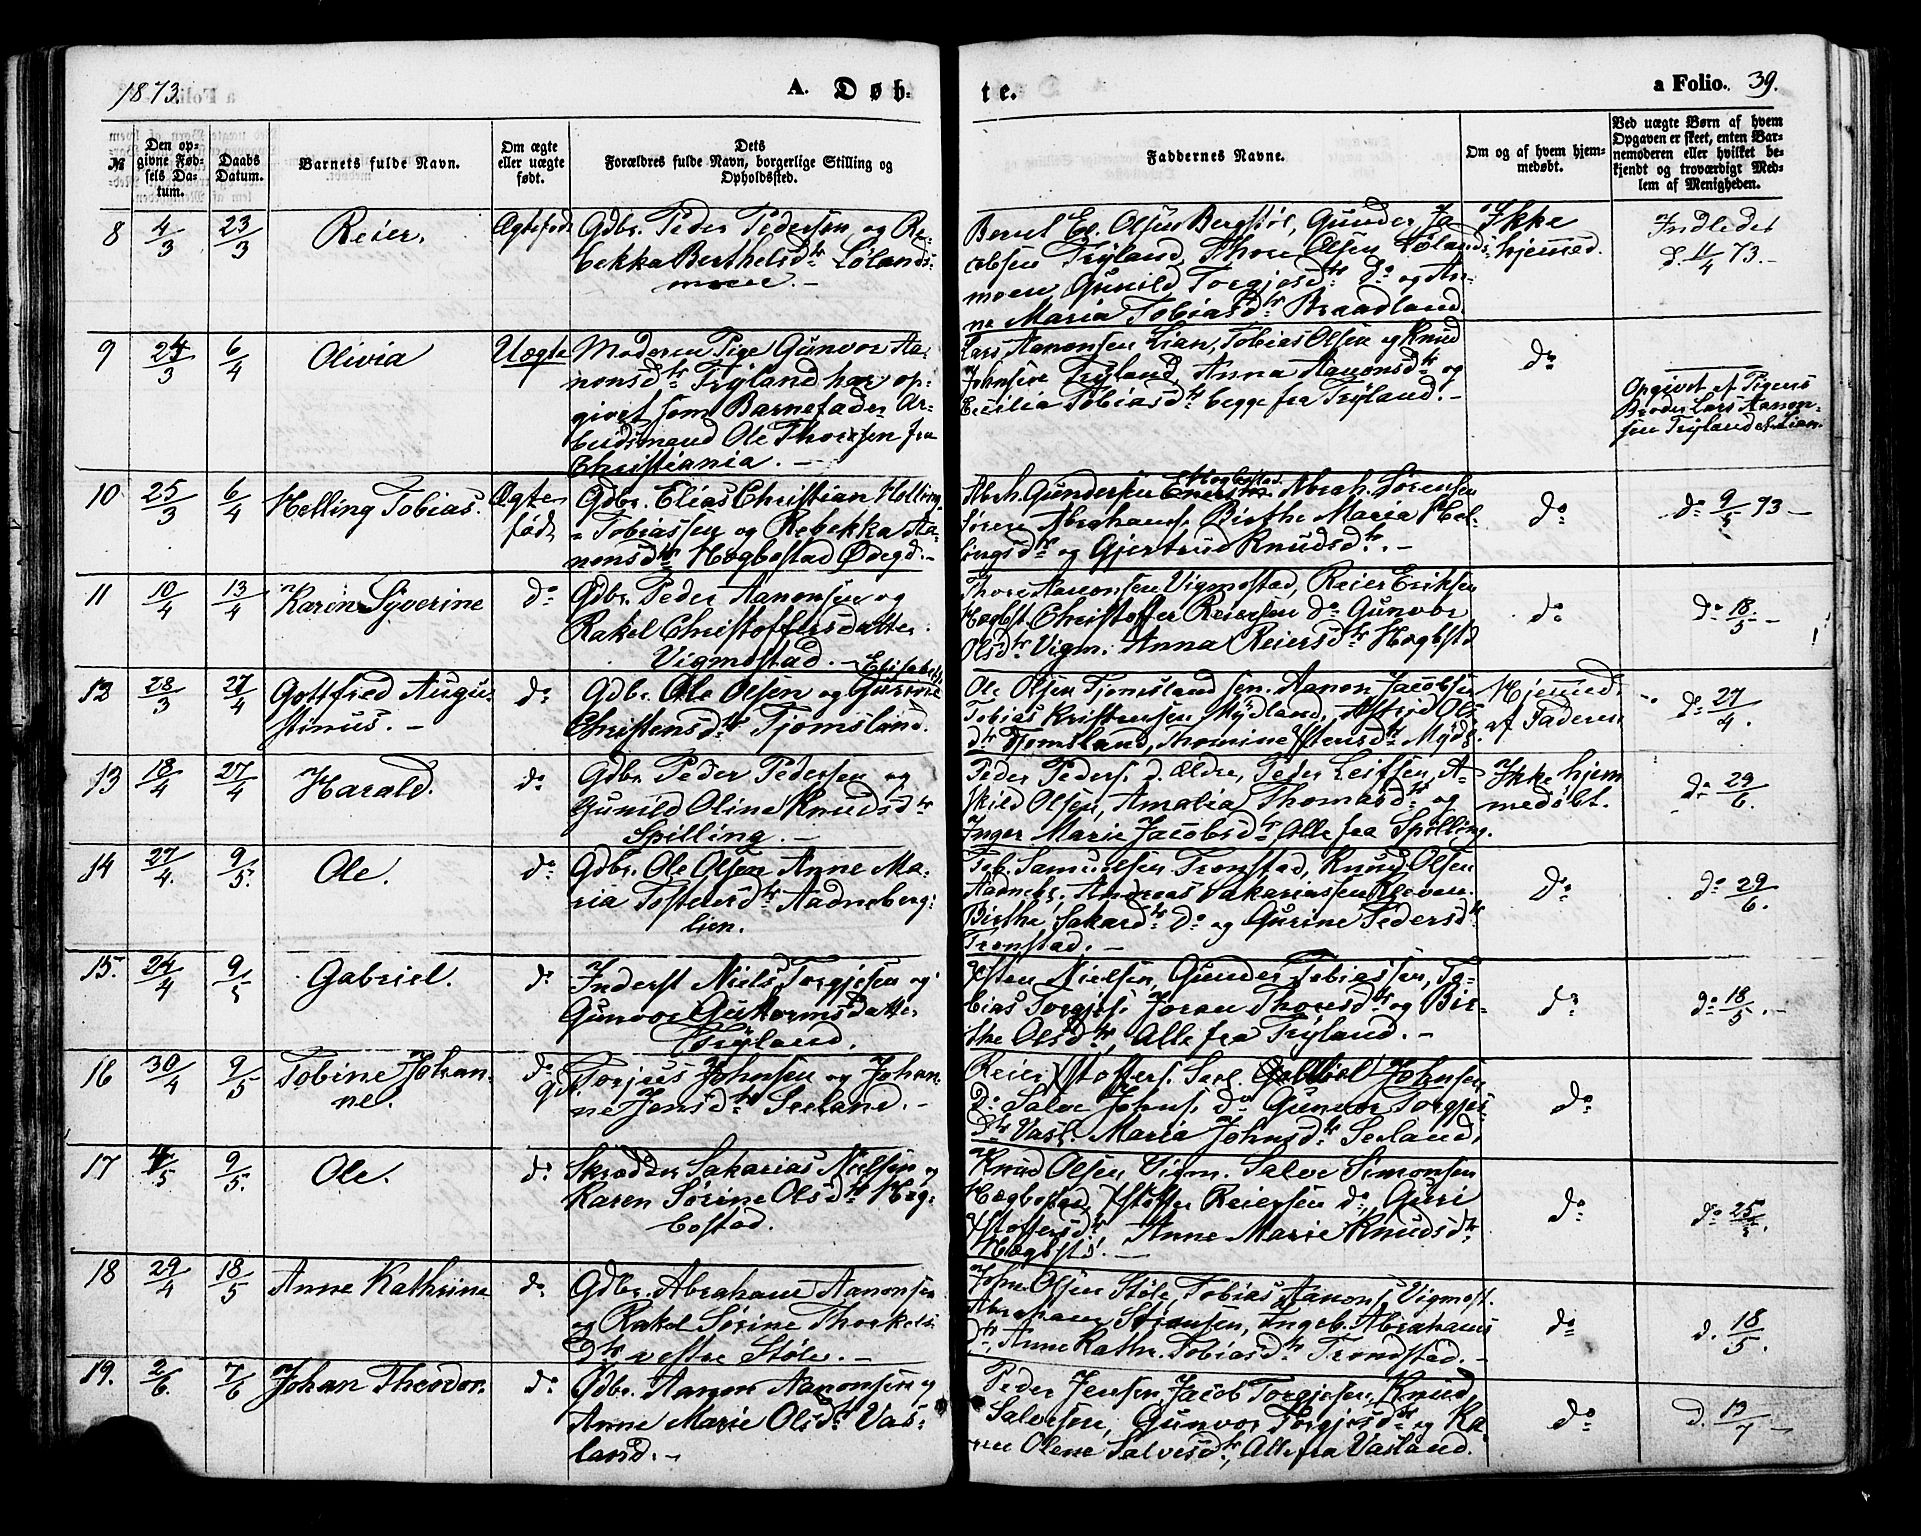 1873.
A. Døb-
te.
a Folio. 39.
№
Den op-
givne Fød-
sels Da-
tum.
Daabs
Datum.
Barnets fulde Navn.
Om ægte
eller uægte
født.
Dets
Forældres fulde Navn, borgerlige Stilling og
Opholdssted.
Faddernes Navne.
Om og af hvem hjem-
medøbt.
Ved uægte Børn af hvem
Opgaven er skeet, enten Bar-
nemoderen eller hvilket be-
kjendt og troværdigt Med-
lem af Menigheden.
8
4/3
23/3
Reier.
Ægtefød.
Gdbr. Peder Pedersen og Re-
bekka Berthelsdtr Lølands-
moen. -
Olsen Bergstøl, Gunder Ja-
cobsen Tryland, Thore Olsen Lølands-
moen Gunild Torgjusdtr do og An-
ne Maria Tobiasdtr Braadland
Ikke
hjemmed.
Indledet
d. 11/4 73. -
9
24/3
6/4
Olivia
Uægte
Moderen Pige Gunvor Aa-
nonsdtr Tryland har op-
givet som Barnefader Ar-
beidsmand Ole Thorsen fra
Christiania. -
Lars Aanonsen Lian, Tobias Olsen og Knud
Johnsen Tryland, Anna Aanonsdtr og
Cecilia Tobiasdtr begge fra Tryland. -
do
Opgivet af Pigens
Broder Lars Aanon-
sen Tryland Lian.
10
25/3
6/4
Helling Tobias.
Ægte
født
Gdbr. Elias Christian Helling-
Tobiassen og Rebekka Aa-
nonsdtr Høgbostad Ødegd. -
Abrh. Gundersen Høgbostad. Abrah. Sørensen
Søren Abrahams. Birthe Maria Hel-
lingsdtr og Gjertrud Knudsdtr. -
do
do 9/5 73 -
11
10/4
13/4
Karen Syverine
do
Gdbr. Peder Aanonsen og
Rakel Christoffersdatter
Vigmostad. -
Thore Aanonsen Vigmostad, Reier Eriksen
Høgbst. Christoffer Reiersen do Gunvor
Olsdtr Vigm. Anna Reiersdtr Høgbstd
do
do 18/5 -
12
28/3
27/4
Gottfred Augu-
stinus. -
do
Elisabeth
Gdbr. Ole Olsen og Gurine
Christensdtr Tjomsland.
Ole Olsen Tjomsland sen. Aanon Jacobsen
Tobias Kristensen Mydland, Astrid Ols-
dtr Tjomsland, Thomine Ostensdtr Mydl.
Hjemmed.
af Faderen
do 27/4.
13
18/4
27/4
Harald.
do
Gdbr. Peder Pedersen og
Gunild Oline Knudsdtr
Spilling. -
Peder Peders. d. ældre, Peder Leifsen, A-
skild Olsen, Amalia Thomasdtr og
Inger Marie Jacobsdtr Alle fra Spilling.
Ikke hjem
medøbt.
do 29/6.
14
27/4.
9/5.
Ole.
do
Gdbr. Ole Olsen Anne Ma-
ria Tostensdtr Aadneberg-
lien.
Tob. Samuelsen Tronstad, Knud Olsen
Aadneb. Andreas Sakariassen
Birthe Sakardtr do og Gurine Pedersdtr
Tronstad. -
do
do 29/6.
15.
24/4
9/5
Gabriel.
do
Inderst Niels Torgjesen og
Gunvor Guttormsdatter
Tryland.
Osten Nielsen, Gunder Tobiassen, To-
bias Torgjes. Joran Thoresdtr og Bir-
the Olsdtr, Alle fra Tryland. -
do
do 18/5. -
16
30/4
9/5
Tobine Johan-
ne.
do
Torjus Johnsen og Johan-
ne Jensdtr Seeland. -
Reier Xstoffers. Seel. Johnsen
do Salve Johns. do Gunvor Torgjus-
dtr Vasl. Maria Johnsdtr Seeland.
do
17
4/5
9/5.
Ole.
do
Skrædder Sakarias Nielsen og
Karen Sørine Olsdtr Høg-
bostad.
Knud Olsen Vigm. Salve Simonsen
Høgbostad, Xstoffer Reiersen do, Guri
Xstoffersdtr, Anne Marie Knudsdtr
Høgbst. -
do
do 25/5.
18
29/4
18/5
Anne Kathrine
do
Gdbr. Abraham Aanonsen
og Rakel Sørine Thorkels-
dtr vestre Støle. -
John Olsen Støle, Tobias Aanons. Vigmost.
Abraham Stiansen, Ingeb. Abrahams-
dtr, Anne Kathr. Tobiasdtr Tronstad. -
do
d. 18/5.
19.
2/6.
7/6
Johan Theodor.
do
Gdbr. Aanon Aanonsen og
Anne Marie Olsdtr Vas-
land. -
Peder Jensen, Jacob Torgjesen, Knud
Salvesen, Gunvor Torgjusdtr og Ka-
ren Olene Salvesdtr, Alle fra Vasland.
do
d. 13/7 -